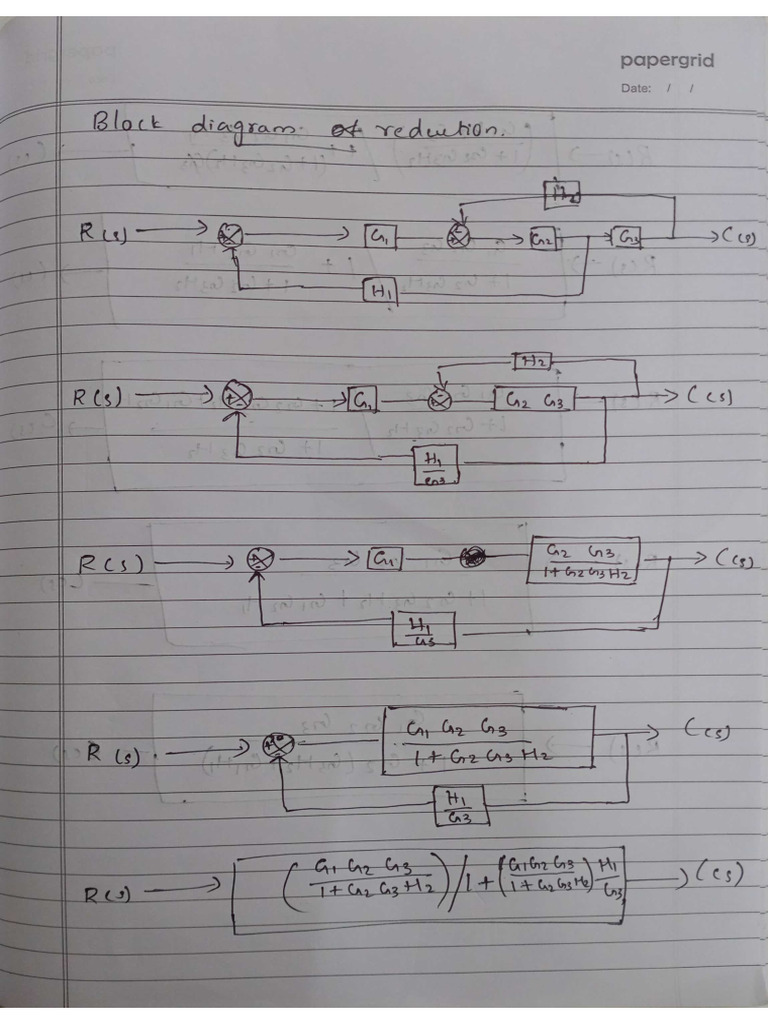 papergrid
Date: / /
Block diagram of reduction.
H2
R(s) G1 G2 G3 C(s)
H1
H2
R(s) + - G1 - G2 G3 C(s)
H1
G3
R(s) G1 G2 G3 C(s)
1+G2G3H2
H1
G3
G1 G2 G3 C(s)
R(s) 1+G2 G3 H2
H1
G3
R(s) (G1 G2 G3 / 1+G2 G3 H2) / 1+ (G1G2G3 / 1+G2G3H2) H1 / G3 C(s)